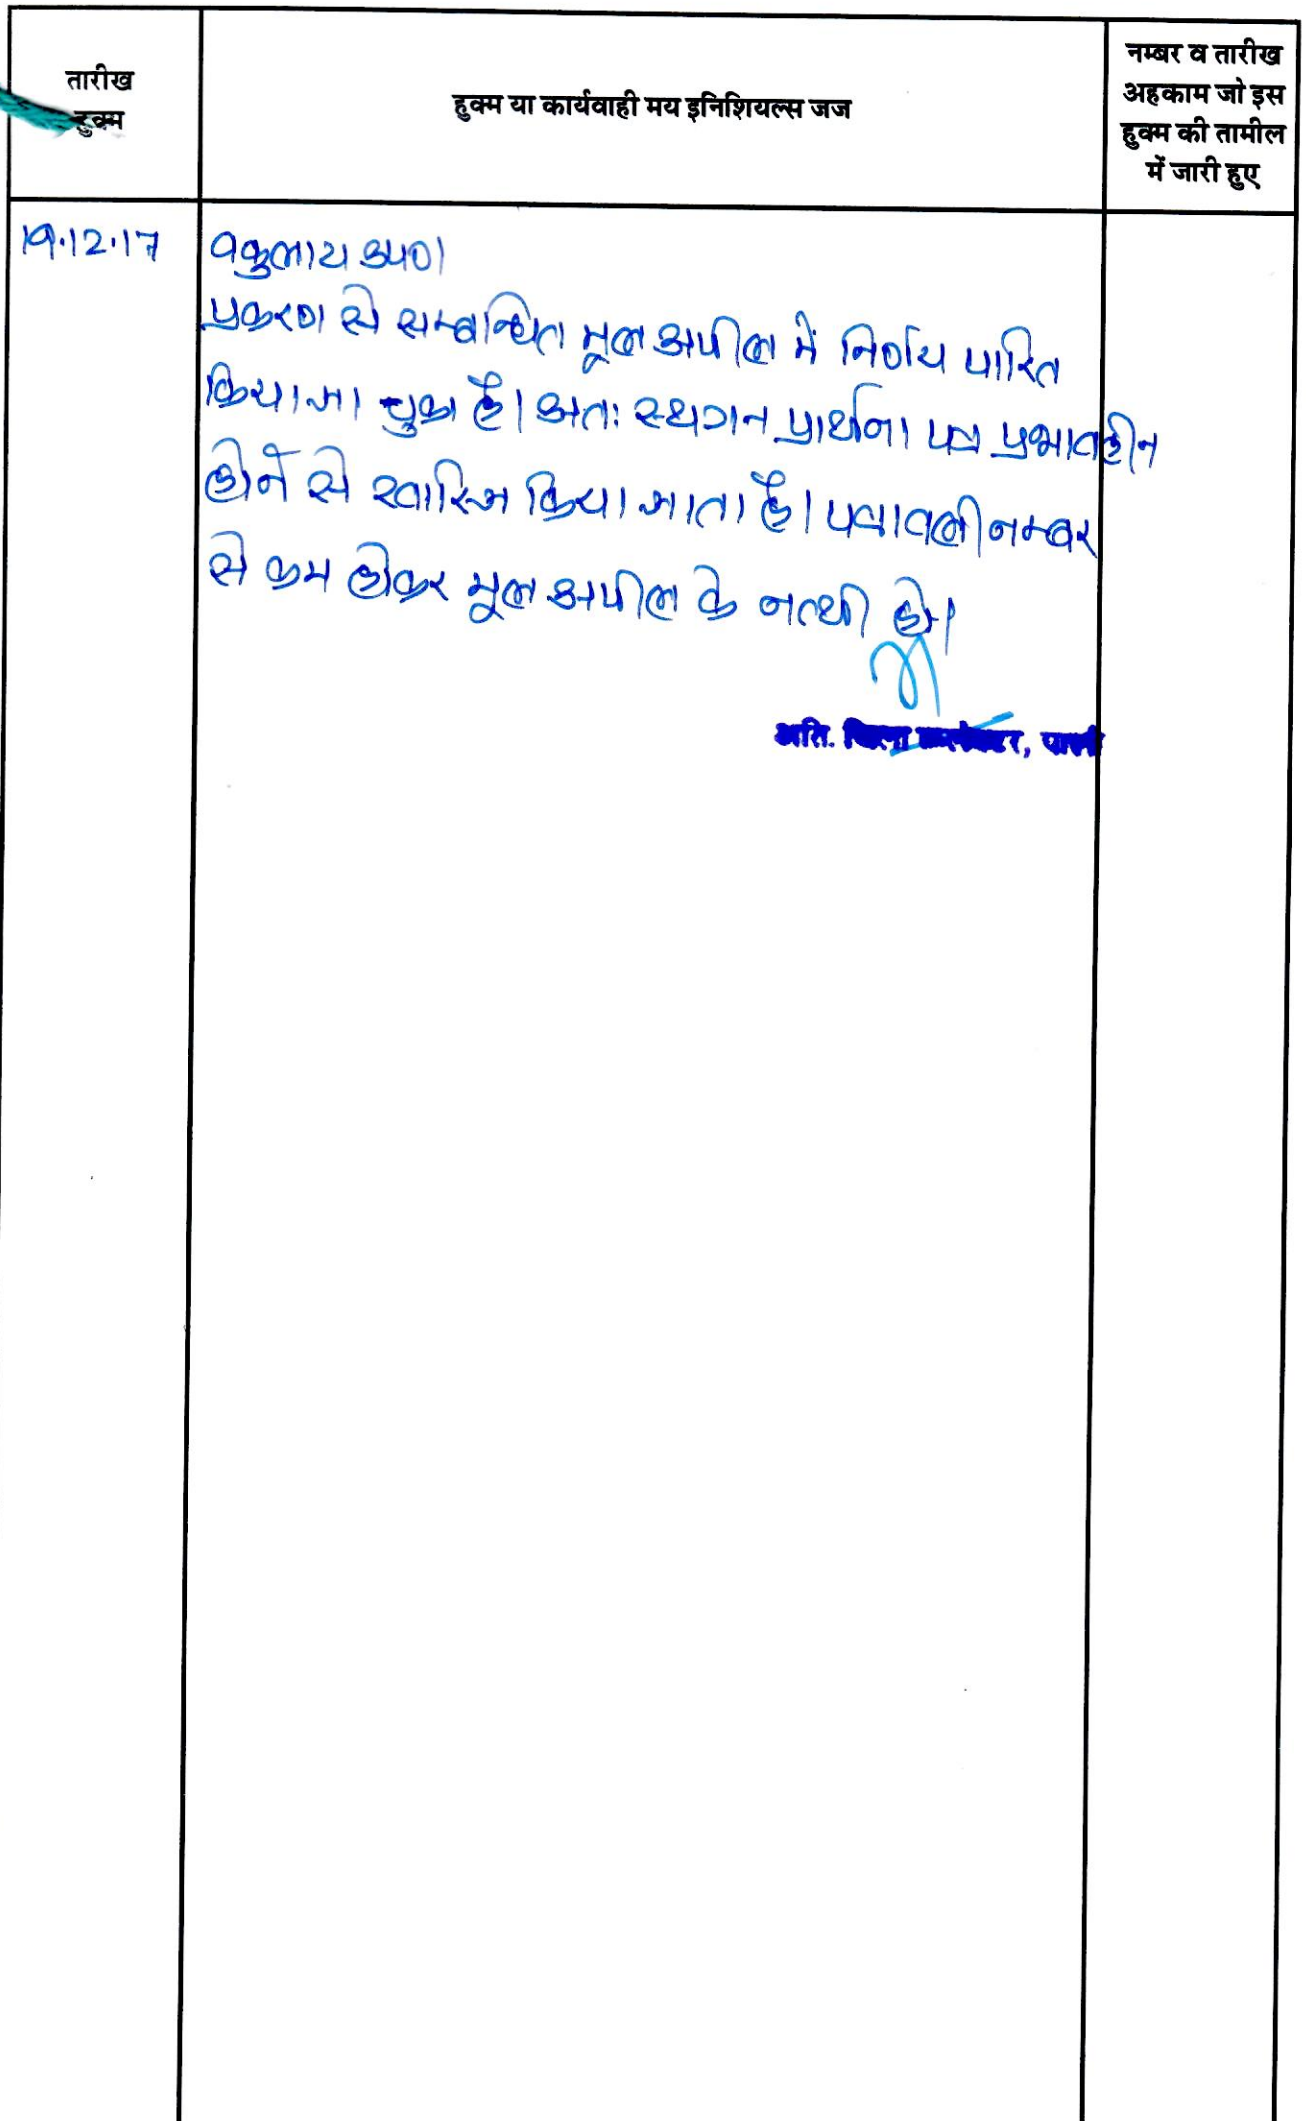 तारीख
हुक्म
हुक्म या कार्यवाही मय इनिशियल्स जज
नम्बर व तारीख
अहकाम जो इस
हुक्म की तामील
में जारी हुए
19.12.17
वकुलाय उप०।
प्रकरण से सम्बन्धित मूल अपील में निर्णय पारित
किया जा चुका है। अतः स्थगन प्रार्थना पत्र प्रभावहीन
होने से खारिज किया जाता है। पत्रावली नम्बर
से कम होकर मूल अपील के नत्थी हो।
अति. जिला कलेक्टर, पाली